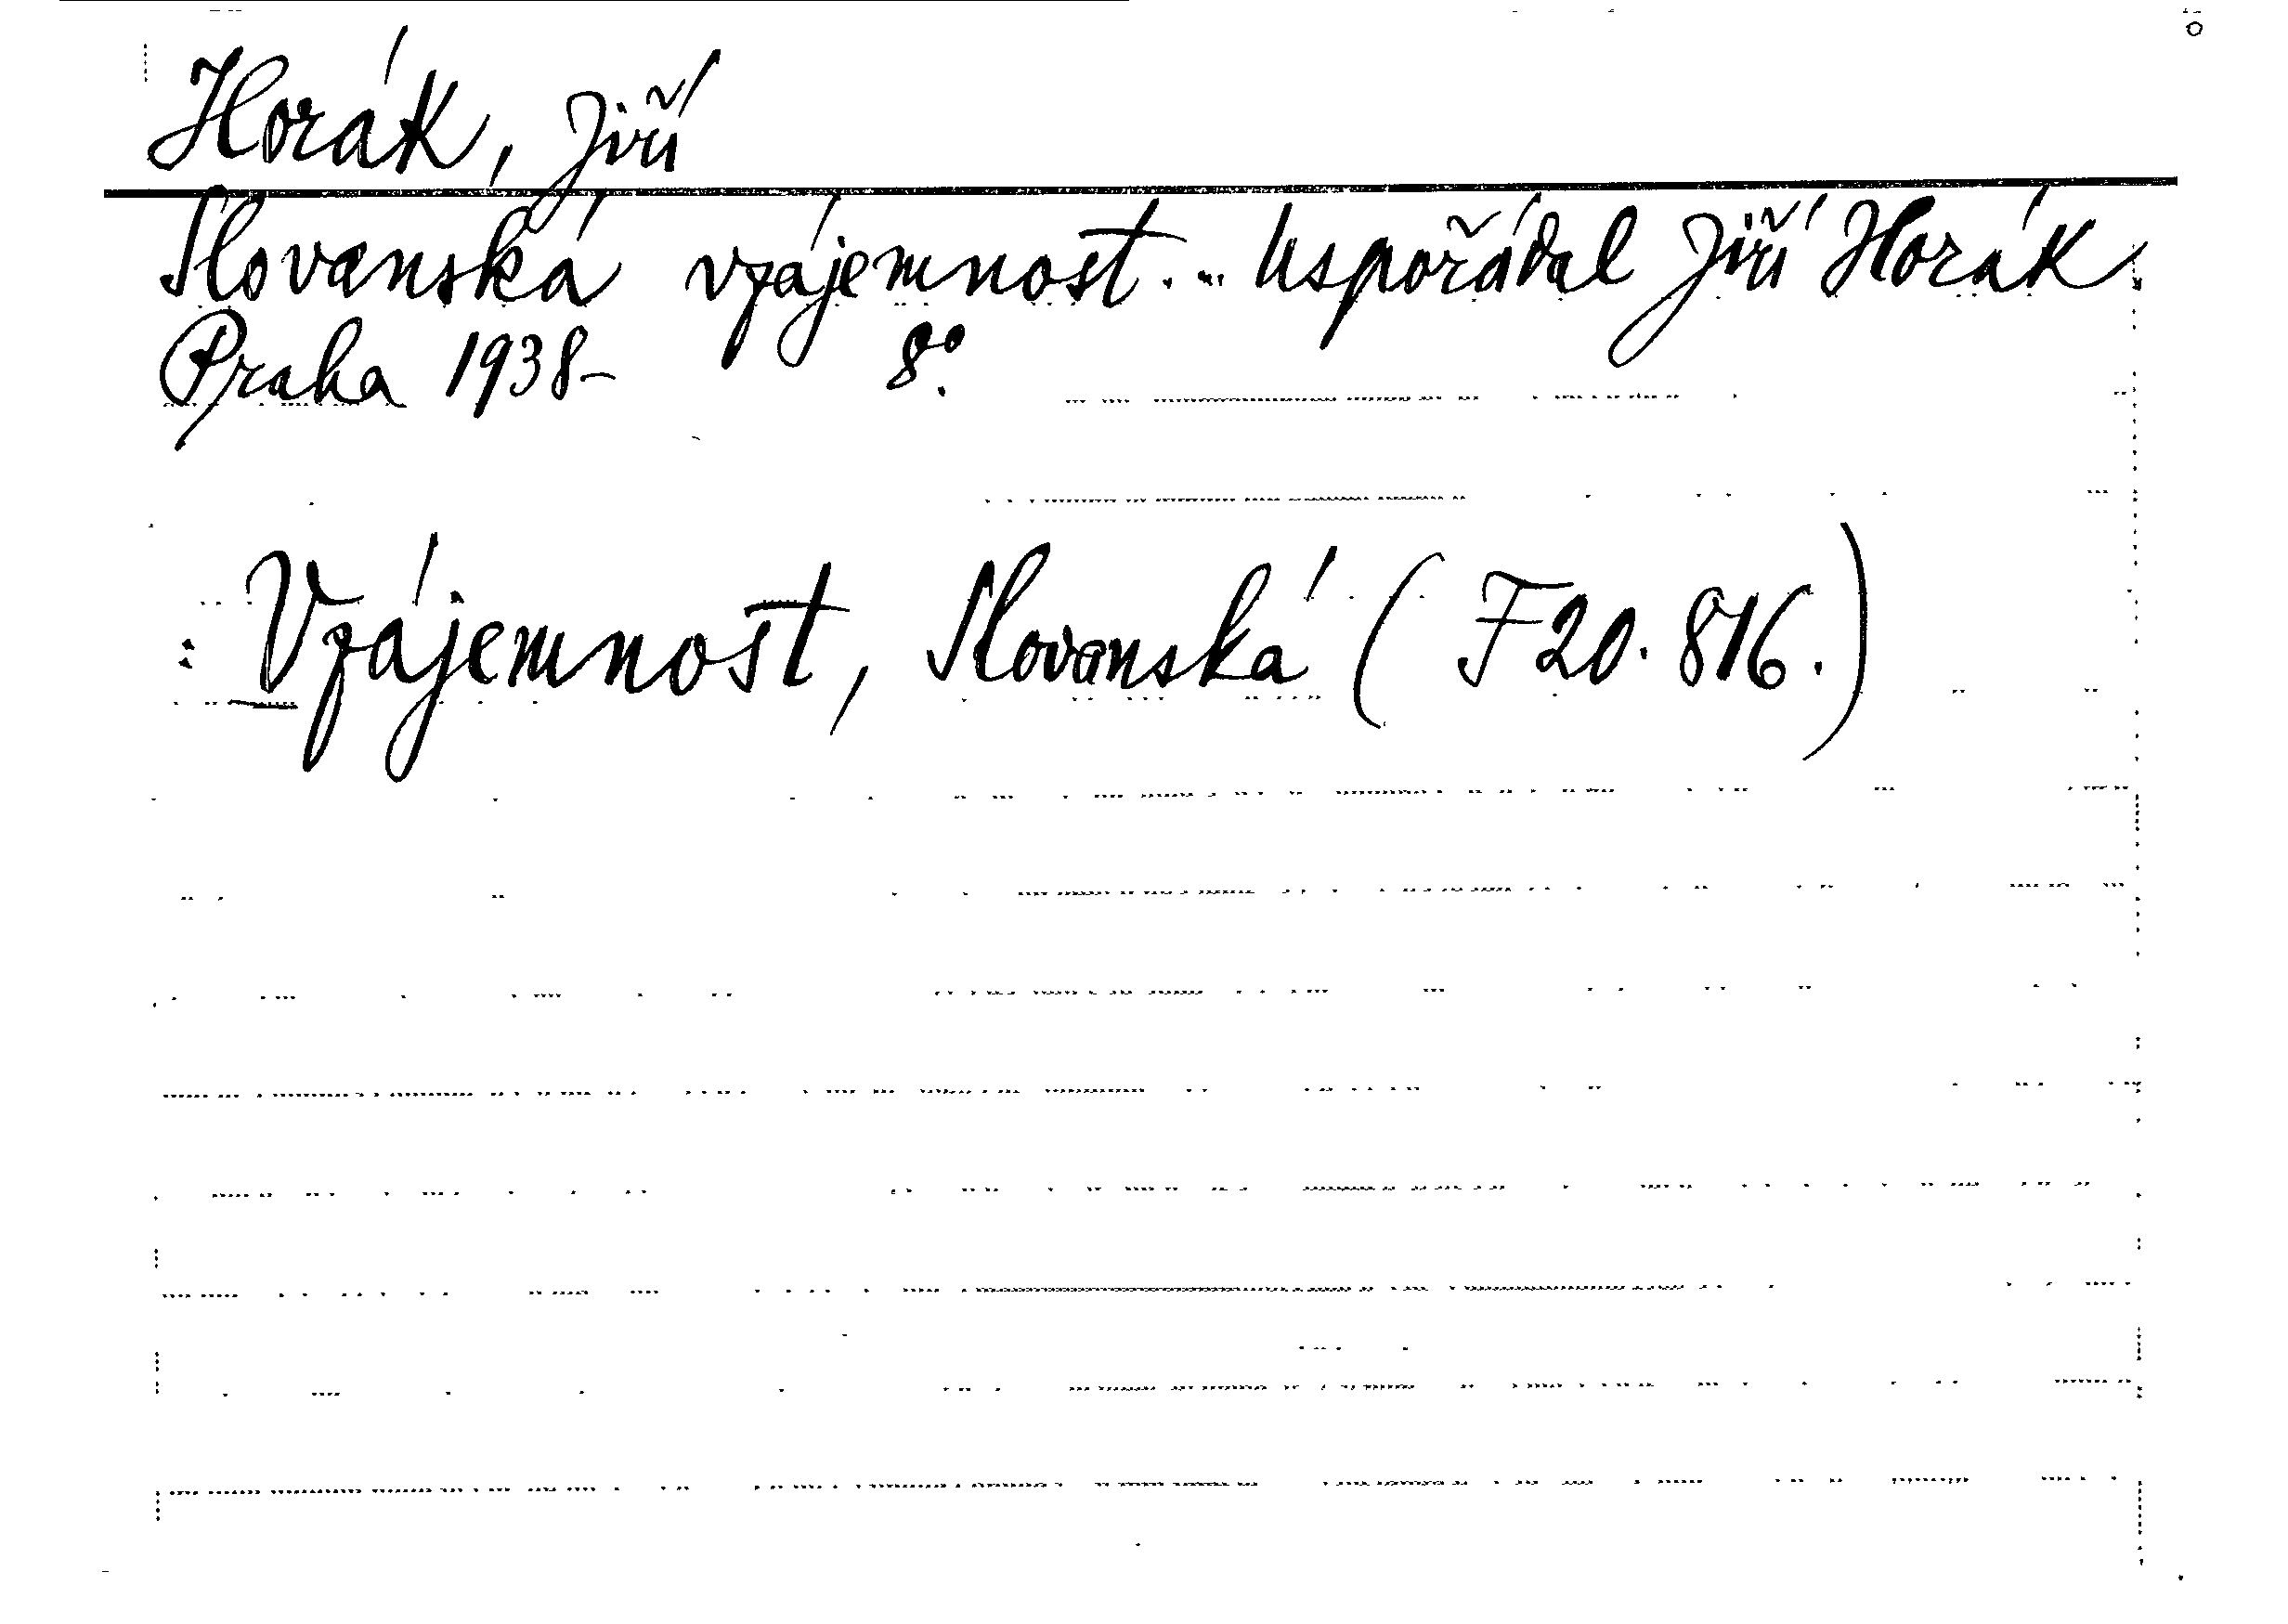 Horák, Jiří
Slovanská vzájemnost... Uspořádal Jiří Horák.
Praha 1938- 8º.
: Vzájemnost, Slovanská (F 20.816.)